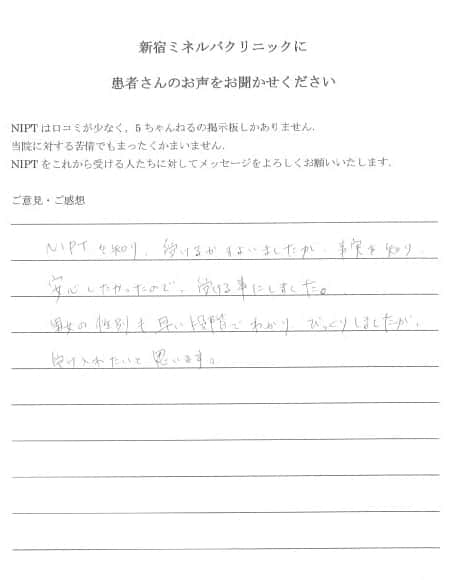 新宿ミネルバクリニックに
患者さんのお声をお聞かせください
NIPTは口コミが少なく，5ちゃんねるの掲示板しかありません．
当院に対する苦情でもまったくかまいません．
NIPTをこれから受ける人たちに対してメッセージをよろしくお願いいたします．
ご意見・ご感想
NIPTを知り、受けるかまよいましたが、事実を知り、
安心したかったので、受ける事にしました。
男女の性別も早い段階でわかり、びっくりしましたが、
受け入れたいと思います。